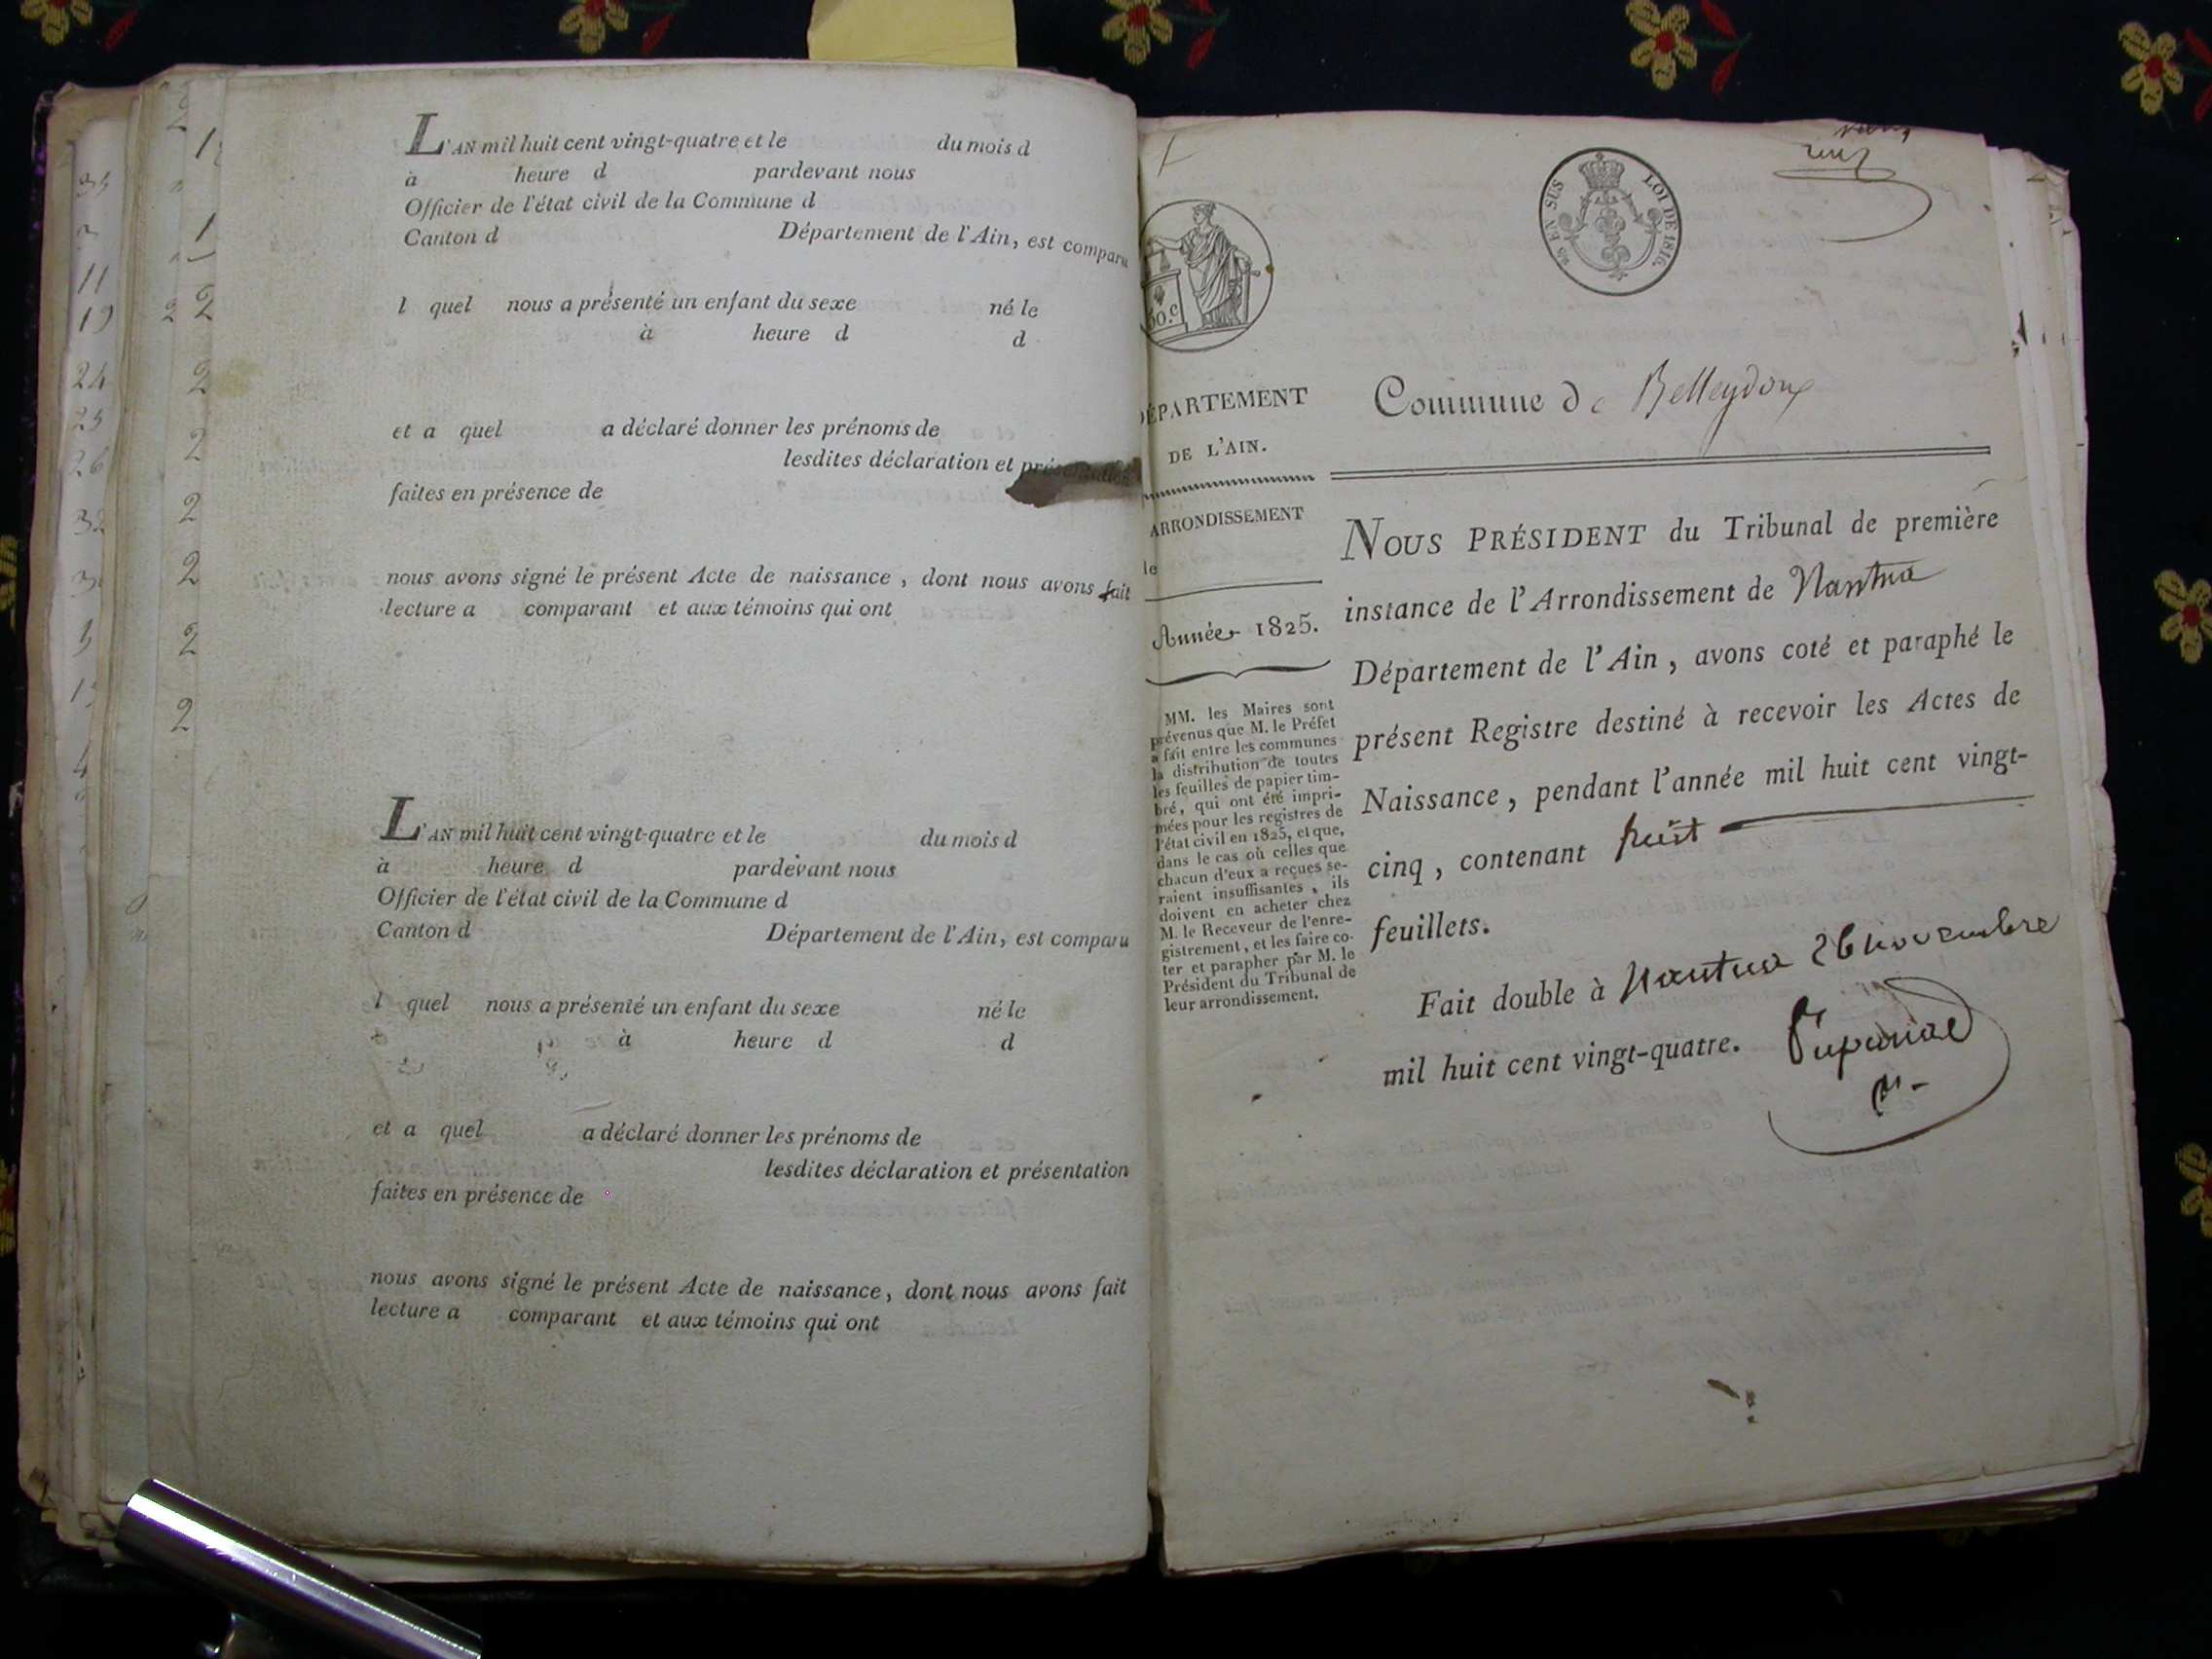 L'AN mil huit cent vingt-quatre et le du mois d
à heure d pardevant nous
Officier de l'état civil de la Commune d
Canton d Département de l'Ain, est comparu
l quel nous a présenté un enfant du sexe né le
à heure d d
et a quel a déclaré donner les prénoms de
lesdites déclaration et présentation
faites en présence de
nous avons signé le présent Acte de naissance, dont nous avons fait
lecture a comparant et aux témoins qui ont
L'AN mil huit cent vingt-quatre et le du mois d
à heure d pardevant nous
Officier de l'état civil de la Commune d
Canton d Département de l'Ain, est comparu
l quel nous a présenté un enfant du sexe né le
à heure d d
et a quel a déclaré donner les prénoms de
lesdites déclaration et présentation
faites en présence de
nous avons signé le présent Acte de naissance, dont nous avons fait
lecture a comparant et aux témoins qui ont
EN SUS LOI DE 1816.
50.c
DÉPARTEMENT
DE L'AIN.
ARRONDISSEMENT
de
Année 1825.
MM. les Maires sont
prévenus que M. le Préfet
a fait entre les communes
la distribution de toutes
les feuilles de papier tim-
bré, qui ont été impri-
mées pour les registres de
l'état civil en 1825, et que,
dans le cas où celles que
chacun d'eux a reçues se-
raient insuffisantes, ils
doivent en acheter chez
M. le Receveur de l'enre-
gistrement, et les faire co-
ter et parapher par M. le
Président du Tribunal de
leur arrondissement.
Commune de Belleydoux
NOUS PRÉSIDENT du Tribunal de première
instance de l'Arrondissement de Nantua
Département de l'Ain, avons coté et paraphé le
présent Registre destiné à recevoir les Actes de
Naissance, pendant l'année mil huit cent vingt-
cinq, contenant huit
feuillets.
Fait double à Nantua 26 novembre
mil huit cent vingt-quatre.